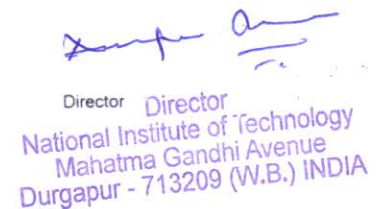 Director Director
National Institute of Technology
Mahatma Gandhi Avenue
Durgapur - 713209 (W.B.) INDIA